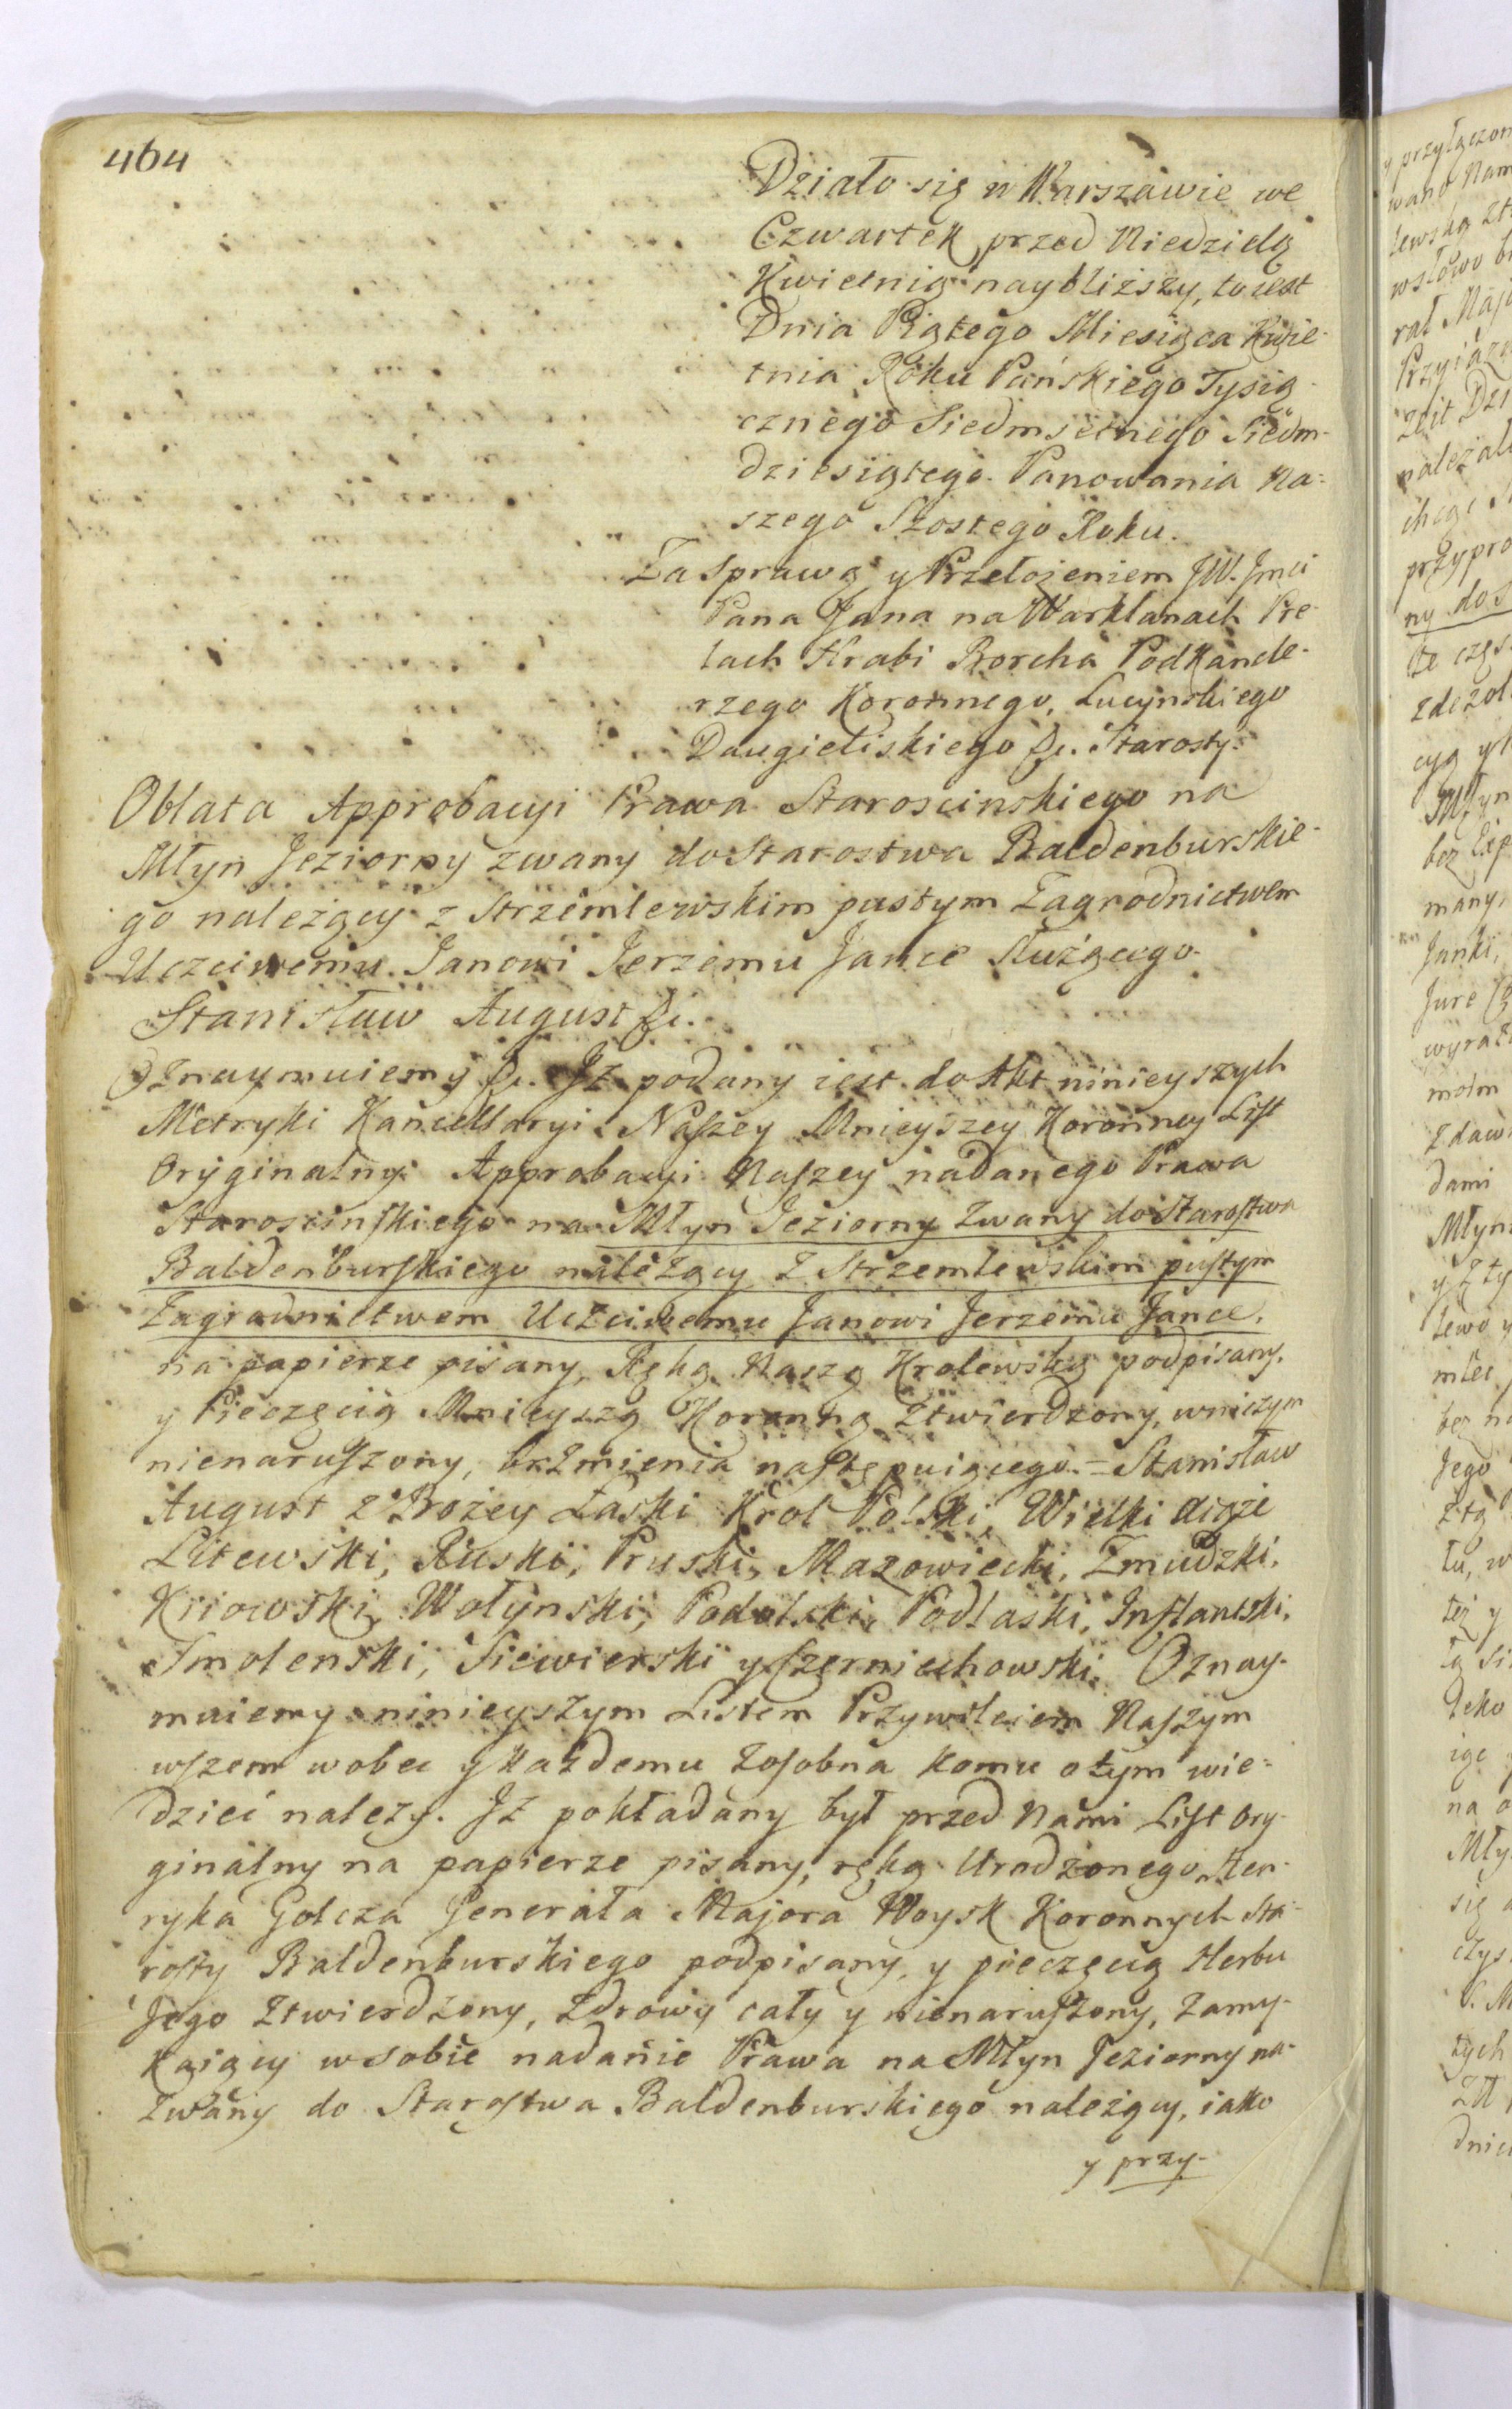 464
Działo się w Warszawie we
Czwartek przed Niedzielą
Kwietnią naybliższy, to iest
Dnia Piątego Miesiąca Kwie-
tnia Roku Pańskiego Tysią-
cznego Siedmsetnego Siedm-
dziesiątego. Panowania Na-
szego Szostego Roku.
Za Sprawą y Przełożeniem JW. Jmci
Pana Jana na Warklanach Pre-
lach Hrabi Borcha PodKancle-
rzego Koronnego, Lucynskiego
Daugieliskiego &c. Starosty.
Oblata Approbacyi Prawa Staroscinskiego na
Młyn Jeziorny zwany do Starostwa Baldenburskie-
go należący z Strzemlewskim pustym Zagrodnictwem
Uczciwemu Janowi Jerzemu Jance służącego.
Stanisław August &c.
Oznaymuiemy &c. Jż podany iest do Akt ninieyszych
Metryki Kancellaryi Naſzey Mnieyszey Koronney Liſt
Oryginalny Approbacyi Naſzey nadanego Prawa
Staroscinſkiego na Młyn Jeziorny Zwany do Staroſtwa
Baldenburſkiego należący Z Strzemlewskim puſtym
Zagrodnictwem Uczciwemu Janowi Jerzemu Jance,
na papierze pisany, Ręką Naszą Krolewską podpisany,
y Pieczęcią Mnieyszą Koronną Ztwierdzony, wniczym
nienaruſzony, brzmienia naſtępuiącego. = Stanisław
August z Bożey Łaski Krol Polski, Wielki Xiąże
Litewski, Ruski, Pruski, Mazowiecki, Zmudzki,
Kiiowski, Wołynski, Podolski, Podlaski, Inflantski,
Smolenski, Siewierski y Czerniechowski. Oznay-
muiemy ninieyszym Listem Przywileiem Naſzym
wſzem wobec y każdemu Zoſobna komu o tym wie-
dzieć należy. Jż pokładany był przed Nami Liſt Ory-
ginalny na papierze pisany, ręką Urodzonego Hen-
ryka Golcza Jenerała Majora Woysk Koronnych Sta-
roſty Baldenburskiego podpisany, y pieczęcią Herbu
Jego Ztwierdzony, Zdrowy cały y nienaruſzony, Zamy-
kaiący w sobie nadanie Prawa na Młyn Jeziorny na-
Zwany do Staroſtwa Baldenburskiego należący, iako
y przy-